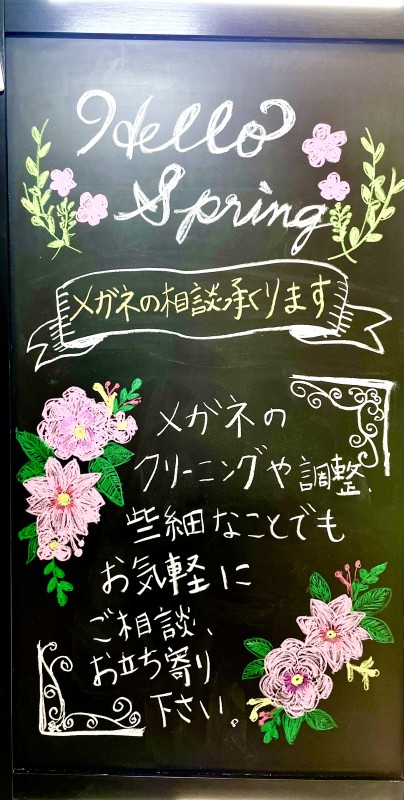 Hello
Spring
メガネの相談承ります
メガネの
クリーニングや調整、
些細なことでも
お気軽に
ご相談、
お立ち寄り
下さい。